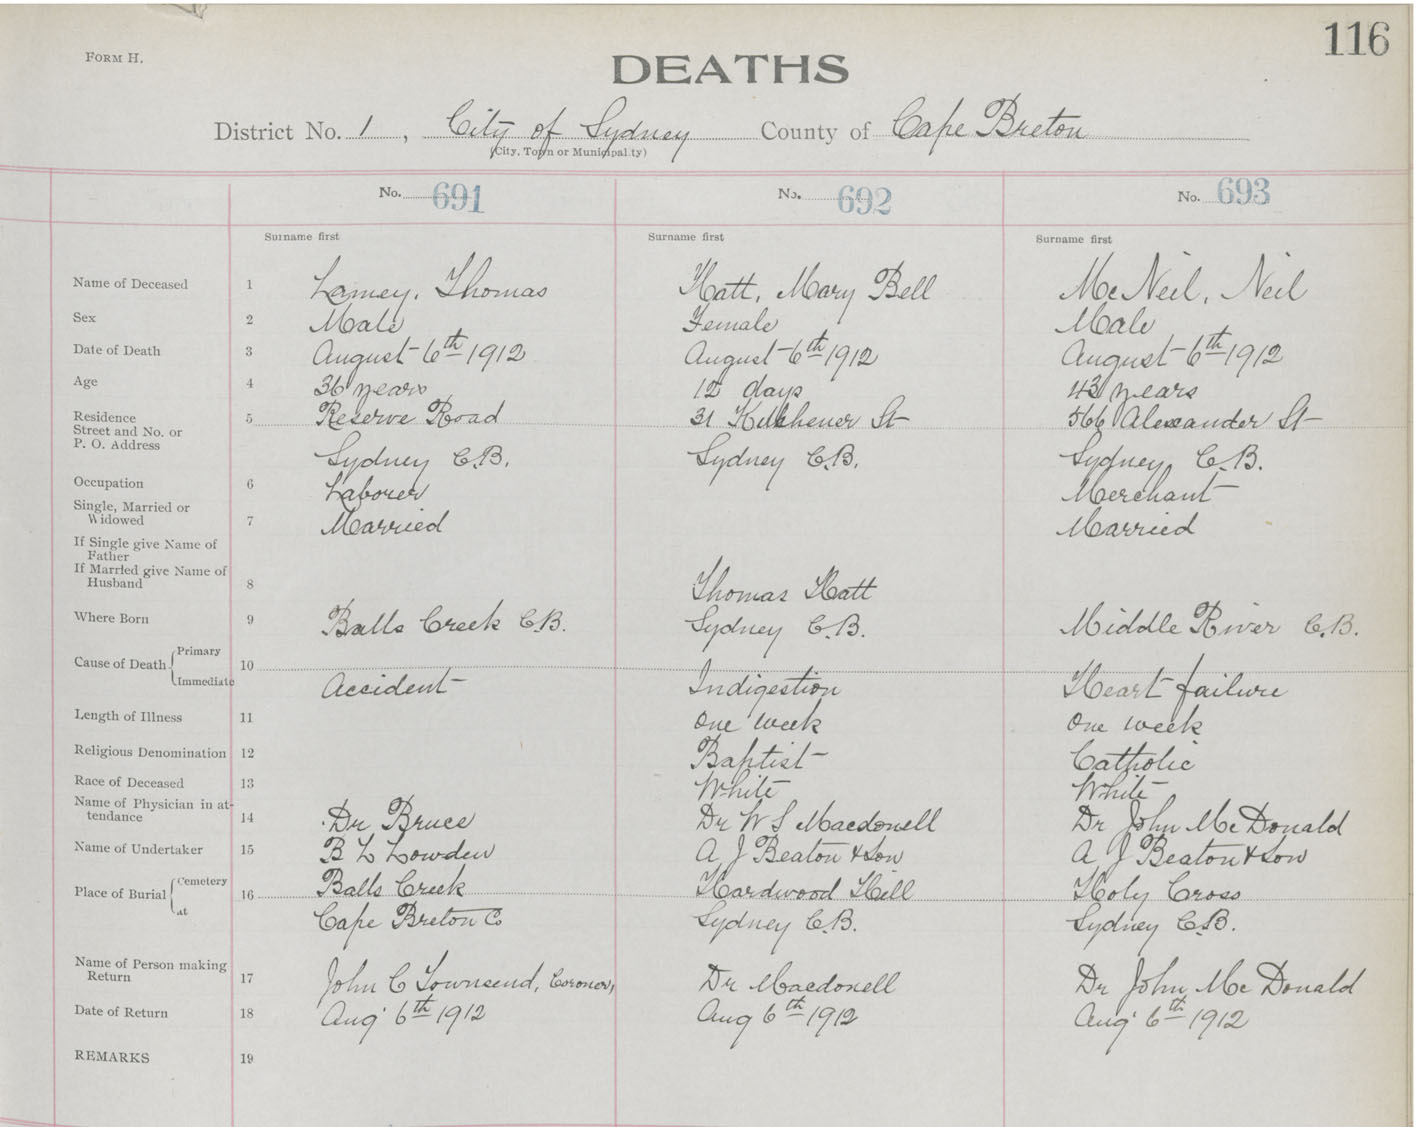 116
FORM H.
DEATHS
District No. 1, City of Sydney County of Cape Breton
(City, Town or Municipality)
No. 691 No. 692 No. 693
Surname first Surname first Surname first
Name of Deceased 1 Lamey, Thomas Hatt, Mary Bell McNeil, Neil
Sex 2 Male Female Male
Date of Death 3 August 6th 1912 August 6th 1912 August 6th 1912
Age 4 36 years 12 days 43 years
Residence 5 Reserve Road 31 Kitchener St 566 Alexander St
Street and No. or
P. O. Address Sydney C.B. Sydney C.B. Sydney, C.B.
Occupation 6 Laborer Merchant
Single, Married or
Widowed 7 Married Married
If Single give Name of
Father
If Married give Name of
Husband 8 Thomas Hatt
Where Born 9 Balls Creek C.B. Sydney C.B. Middle River C.B.
Cause of Death Primary 10
Immediate Accident Indigestion Heart failure
Length of Illness 11 one week one week
Religious Denomination 12 Baptist Catholic
Race of Deceased 13 White White
Name of Physician in at-
tendance 14 Dr Bruce Dr W S Macdonell Dr John McDonald
Name of Undertaker 15 B L Lowden A J Beaton & Son A J Beaton & Son
Place of Burial Cemetery 16 Balls Creek Hardwood Hill Holy Cross
at Cape Breton Co Sydney C.B. Sydney C.B.
Name of Person making
Return 17 John C Townsend, Coroner, Dr Macdonell Dr John McDonald
Date of Return 18 Aug 6th 1912 Aug 6th 1912 Aug 6th 1912
REMARKS 19